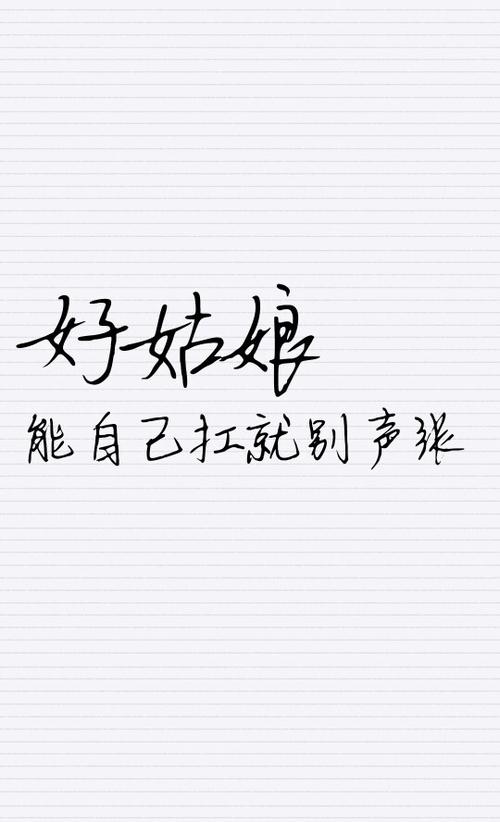 好姑娘
能自己扛就别声张